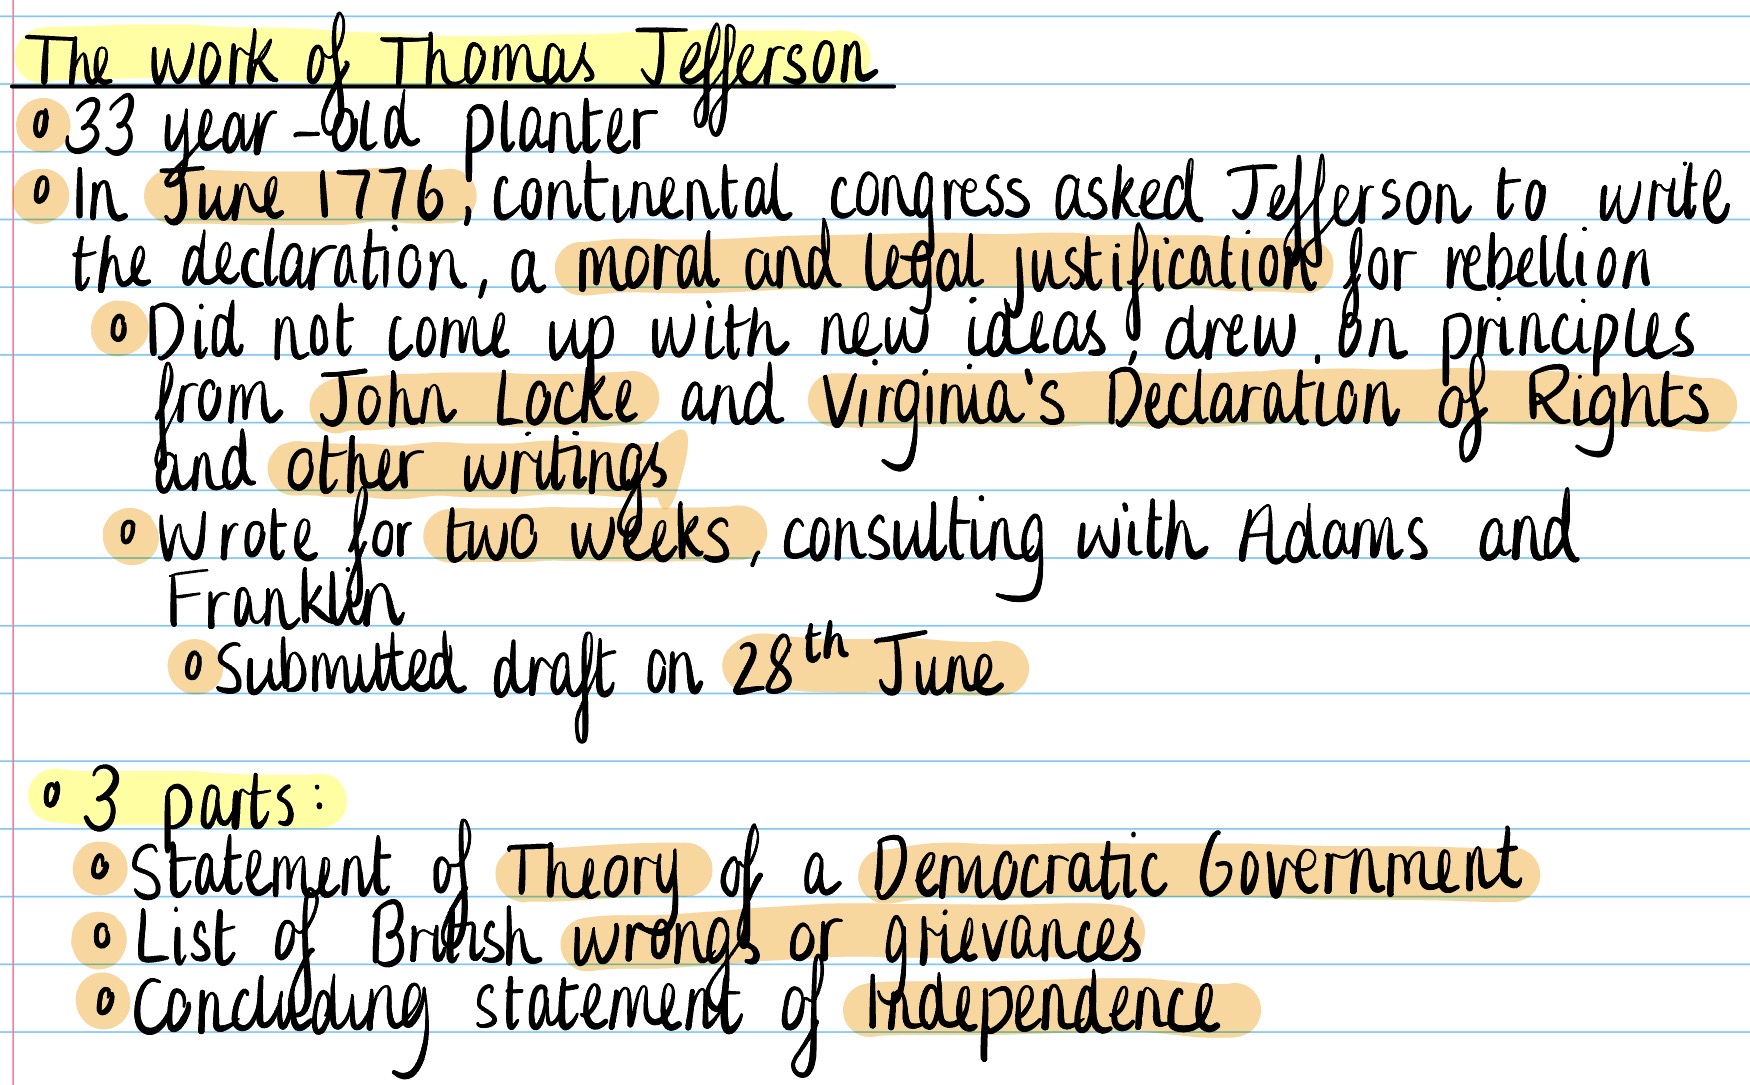 The work of Thomas Jefferson
o 33 year-old planter
o In June 1776, continental congress asked Jefferson to write
the declaration, a moral and legal justification for rebellion
o Did not come up with new ideas, drew on principles
from John Locke and Virginia's Declaration of Rights
and other writings
o Wrote for two weeks, consulting with Adams and
Franklin
o Submitted draft on 28th June
o 3 parts:
o Statement of Theory of a Democratic Government
o List of British wrongs or grievances
o Concluding statement of Independence